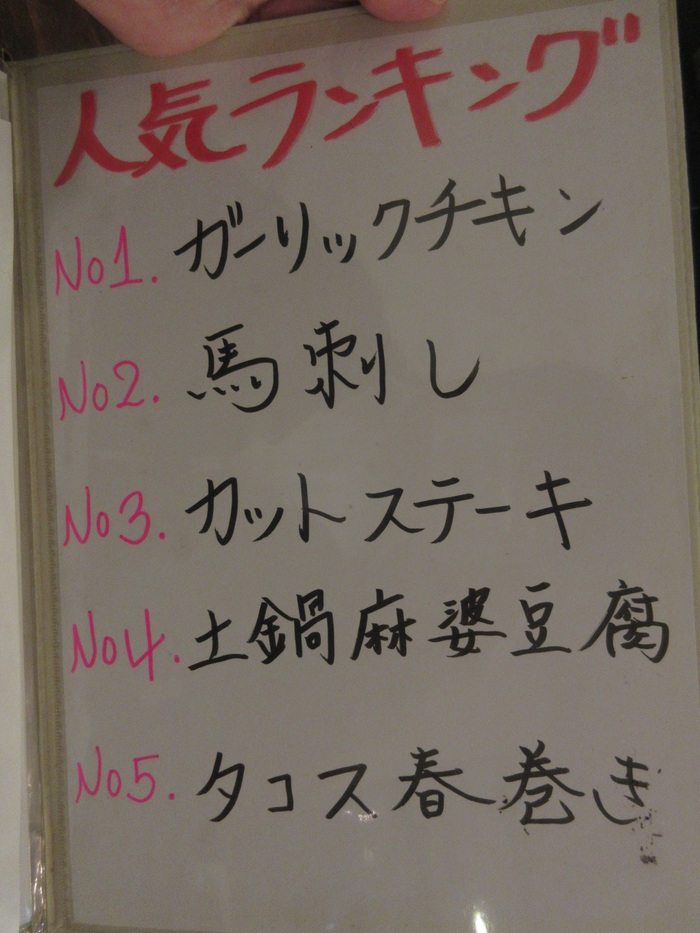 人気ランキング
No1. ガーリックチキン
No2. 馬刺し
No3. カットステーキ
No4. 土鍋麻婆豆腐
No5. タコス春巻き